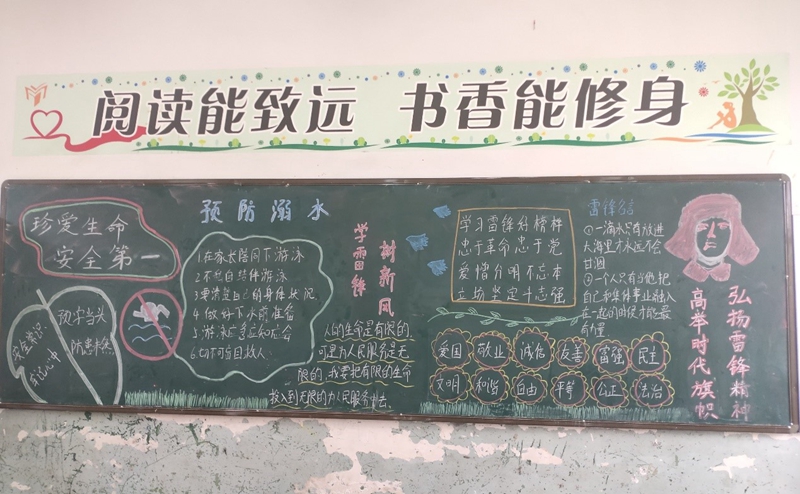 阅读能致远 书香能修身
珍爱生命
安全第一
预字当头
防患未然
安全常识
牢记心中
预防溺水
1.在家长陪同下游泳
2.不独自结伴游泳
3.要清楚自己的身体状况
4.做好下水前准备
5.游泳
6.切不可盲目救人
学雷锋
树新风
人的生命是有限的,
可是为人民服务是无
限的,我要把有限的生命
投入到无限的为人民服务中去.
学习雷锋好榜样
忠于革命忠于党
爱憎分明不忘本
立场坚定斗志强
爱国
敬业
诚信
友善
富强
民主
文明
和谐
自由
平等
公正
法治
雷锋名言
①一滴水只有放进
大海里才永远不会
干涸
②一个人只有当他把
自己和集体事业融入
在一起的时候才能最
有力量
弘扬雷锋精神
高举时代旗帜